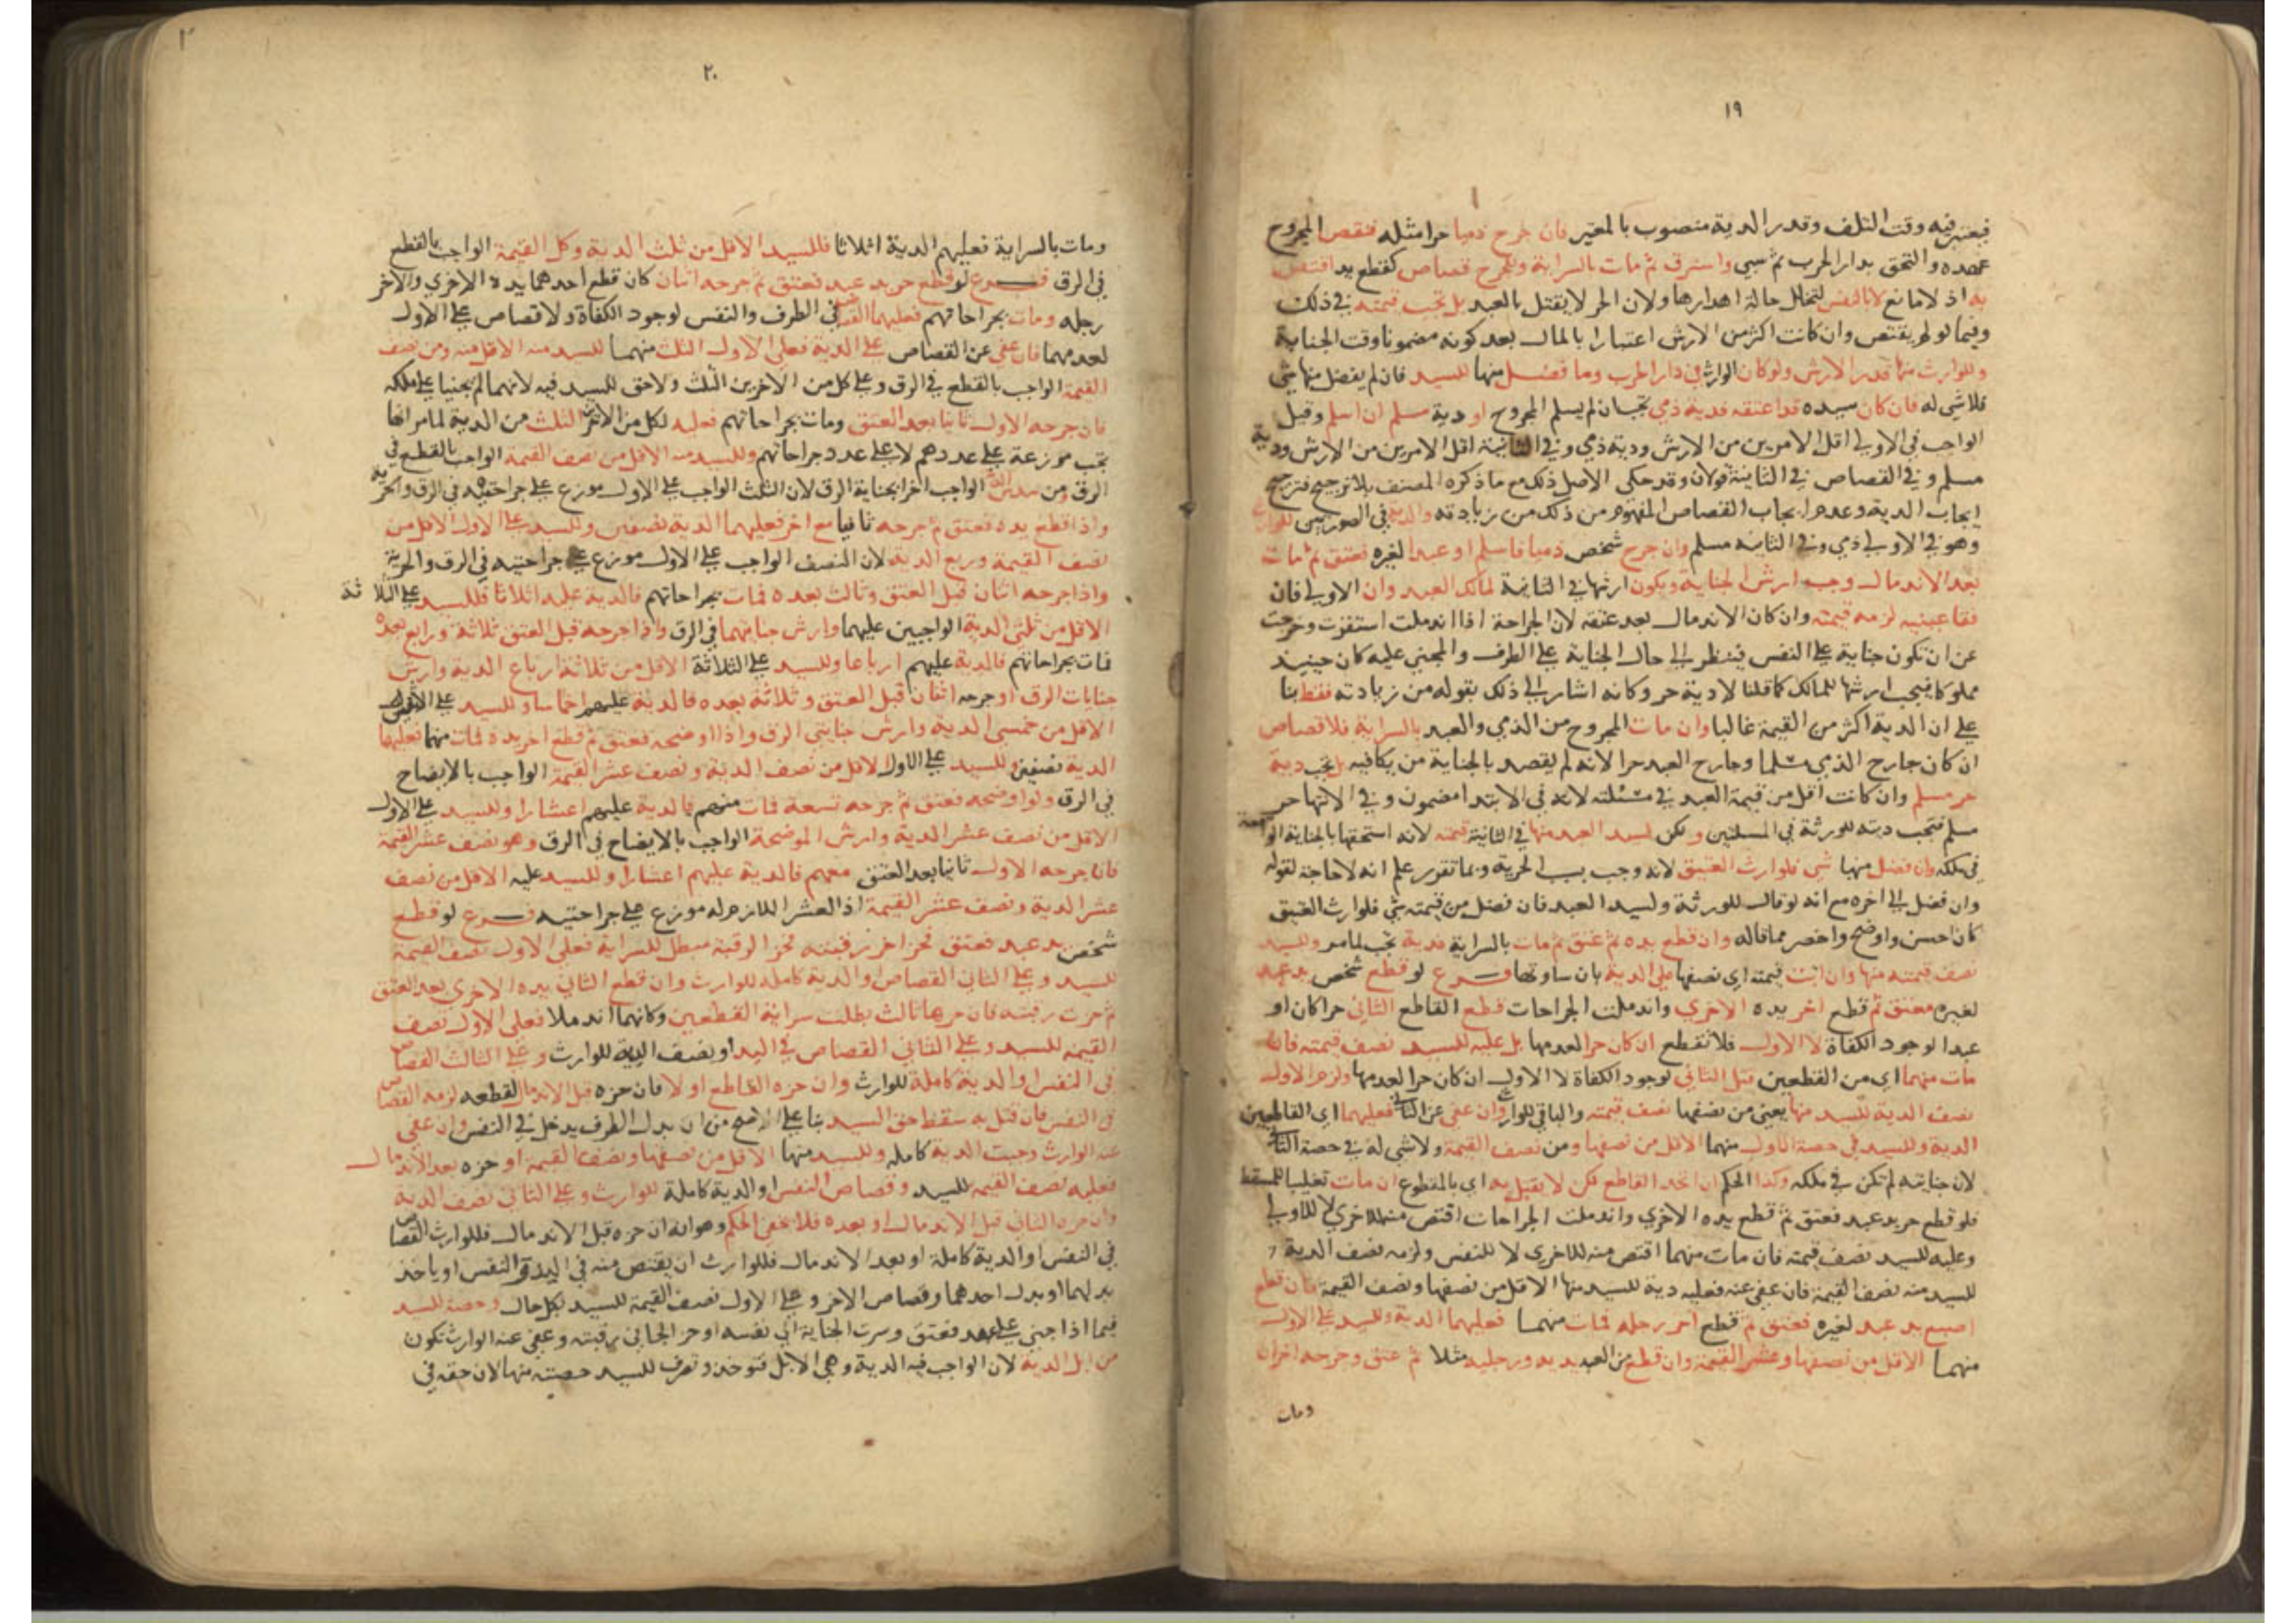 ١٩
فيعتبر فيه وقت التلف وقدر الدية منصوب بالمعتبر فان جرح ذميا حرا مثله فنقض المجروح
عهده والتحق بدار الحرب ثم سبي واسترق ثم مات بالسراية وللجرح قصاص كقطع يد اقتص
به اذ لا مانع لا بالنفس لتخلل حالة اهدارها ولان الحر لا يقتل بالعبد بل تجب قيمته في ذلك
وفيما لو لم يقتص وان كانت اكثر من الارش اعتبارا بالمال بعد كونه مضمونا وقت الجناية
وللوارث منها قدر الارش ولو كان الوارث في دار الحرب وما فضل منها للسيد فان لم يفضل منها شي
فلا شي له فان كان سيده قد اعتقه فدية ذمي تجب ان لم يسلم المجروح او دية مسلم ان اسلم وقيل
الواجب في الاولى اقل الامرين من الارش ودية ذمي وفي الثانية اقل الامرين من الارش ودية
مسلم وفي القصاص في الثانية قولان وقد حكى الاصل ذلك مع ما ذكره المصنف بلا ترجيح فترجيح
ايجاب الدية وعدم ايجاب القصاص المفهوم من ذلك من زيادته والدية في الصورتين للوارث
وهو في الاولى ذمي وفي الثانية مسلم وان جرح شخص ذميا فاسلم او عبدا لغيره فعتق ثم مات
بعد الاندمال وجب ارش الجناية ويكون ارشها في الثانية لمالك العبد وان الاولى فان
فقا عينيه لزمه قيمته وان كان الاندمال بعد عتقه لان الجراحة اذا اندملت استقرت وخرجت
عن ان تكون جناية على النفس فينظر الى حال الجناية على الطرف والمجني عليه كان حينيذ
مملوكا فيجب ارشها للمالك كما قلنا لا دية حر وكانه اشار الى ذلك بقوله من زيادته فقط بنا
على ان الدية اكثر من القيمة غالبا وان مات المجروح من الذمي والعبد بالسراية فلا قصاص
ان كان جارح الذمي مسلما وجارح العبد حرا لانه لم يقصد بالجناية من يكافيه بل تجب دية
حر مسلم وان كانت اقل من قيمة العبد في مسئلته لانه في الابتدا مضمون وفي الانتها حر
مسلم فتجب ديته للورثة في المسلتين ولكن لسيد العبد منها في الثانية قيمته لانه استحقها بالجناية الواقعة
في ملكه وان فضل منها شي فلوارث العتيق لانه وجب بسبب الحرية وبما تقرر علم انه لا حاجة لقوله
وان فضل الى اخره مع انه لو قال للورثة ولسيد العبد فان فضل من قيمته شي فلوارث العتيق
كان احسن واوضح واخصر مما قاله وان قطع يده ثم عتق ثم مات بالسراية فدية تجب لما مر وللسيد
نصف قيمته منها وان اتت قيمته اي نصفها على الدية بان ساوتها فرع لو قطع شخص يد عبد
لغيره فعتق ثم قطع اخر يده الاخرى واندملت الجراحات قطع القاطع الثاني حرا كان او
عبدا لوجود الكفاة لا الاول فلا تقطع ان كان حرا لعدمها بل عليه للسيد نصف قيمته فان
مات منهما اي من القطعين قتل الثاني لوجود الكفاة لا الاول ان كان حرا لعدمها ولزم الاول
نصف الدية للسيد منها يعني من نصفها نصف قيمته والباقي للوارث وان عفي عن الثاني فعليهما اي القاطعين
الدية وللسيد في حصة الاول منهما الاقل من نصفها ومن نصف القيمة ولا شي له في حصة الثاني
لان جنايته لم تكن في ملكه وكذا الحكم ان اتحد القاطع لكن لا يقتل به اي بالمقطوع ان مات تغليبا للمسقط
فلو قطع حر يد عبد فعتق ثم قطع يده الاخرى واندملت الجراحات اقتص منه للاخرى لا للاولى
وعليه للسيد نصف قيمته فان مات منهما اقتص منه للاخرى لا للنفس ولزمه نصف الدية
للسيد منه نصف القيمة فان عفي عنه فعليه دية للسيد منها الاقل من نصفها ونصف القيمة فان قطع
اصبع يد عبد لغيره فعتق ثم قطع اخر رجله فمات منهما فعليهما الدية وللسيد على الاول
منهما الاقل من نصفها وعشر القيمة وان قطع من العبد يديه ورجليه مثلا ثم عتق وجرحه اخران
ومات
٢٠
ومات بالسراية فعليهم الدية اثلاثا فللسيد الاقل من ثلث الدية وكل القيمة الواجب بالقطع
في الرق فرع لو قطع حر يد عبد فعتق ثم جرحه اثنان كان قطع احدهما يده الاخري والاخر
رجله ومات بجراحاتهم فعليهما القصاص في الطرف والنفس لوجود الكفاة ولا قصاص على الاول
لعدمهما فان عفي عن القصاص على الدية فعلى الاول الثلث منهما للسيد منه الاقل منه ومن نصف
القيمة الواجب بالقطع في الرق وعلى كل من الاخرين الثلث ولا حق للسيد فيه لانهما لم يجنيا على ملكه
فان جرحه الاول ثانيا بعد العتق ومات بجراحاتهم فعليه لكل من الاخرين الثلث من الدية لما مر انها
تجب موزعة على عددهم لا على عدد جراحاتهم وللسيد منه الاقل من نصف القيمة الواجب بالقطع في
الرق ومن سدس الدية الواجب اخرا بجناية الرق لان الثلث الواجب على الاول موزع على جراحتيه في الرق والحرية
واذا قطع يده فعتق ثم جرحه ثانيا مع اخر فعليهما الدية نصفين وللسيد على الاول الاقل من
نصف القيمة وربع الدية لان النصف الواجب على الاول موزع على جراحتيه في الرق والحرية
واذا جرحه اثنان قبل العتق وثالث بعده فمات بجراحاتهم فالدية عليه اثلاثا فللسيد على الثلاثة
الاقل من ثلثي الدية الواجبين عليهما وارش جنايتهما في الرق واذا جرحه قبل العتق ثلاثة ورابع بعده
فمات بجراحاتهم فالدية عليهم ارباعا وللسيد على الثلاثة الاقل من ثلاثة ارباع الدية وارش
جنايات الرق او جرحه اثنان قبل العتق وثلاثة بعده فالدية عليهم اخماسا وللسيد على الاولين
الاقل من خمسي الدية وارش جنايتي الرق واذا اوضحه فعتق ثم قطع اخر يده فمات منهما فعليهما
الدية نصفين وللسيد على الاول الاقل من نصف الدية ونصف عشر القيمة الواجب بالايضاح
في الرق ولو اوضحه فعتق ثم جرحه تسعة فمات منهم فالدية عليهم اعشارا وللسيد على الاول
الاقل من نصف عشر الدية وارش الموضحة الواجب بالايضاح في الرق وهو نصف عشر القيمة
فان جرحه الاول ثانيا بعد العتق معهم فالدية عليهم اعشارا وللسيد عليه الاقل من نصف
عشر الدية ونصف عشر القيمة اذ العشر اللازم له موزع على جراحتيه فرع لو قطع
شخص يد عبد فعتق فحز اخر رقبته فحز الرقبة مبطل للسراية فعلى الاول نصف القيمة
للسيد وعلى الثاني القصاص او الدية كاملة للوارث وان قطع الثاني يده الاخرى بعد العتق
ثم حزت رقبته فان حزها ثالث بطلت سراية القطعين وكانهما اندملا فعلى الاول نصف
القيمة للسيد وعلى الثاني القصاص في اليد او نصف الدية للوارث وعلى الثالث القصاص
في النفس او الدية كاملة للوارث وان حزه القاطع اولا فان حزه قبل الاندمال لقطعه لزمه القصاص
في النفس فان قتل به سقط حق السيد بنا على الاصح من ان بدل الطرف يدخل في النفس وان عفي
عنه الوارث وجبت الدية كاملة وللسيد منها الاقل من نصفها ونصف القيمة او حزه بعد الاندمال
فعليه نصف القيمة للسيد وقصاص النفس او الدية كاملة للوارث وعلى الثاني نصف الدية
وان حزه الثاني قبل الاندمال او بعده فلا يخفى الحكم وهو انه ان حزه قبل الاندمال فللوارث القصاص
في النفس او الدية كاملة او بعد الاندمال فللوارث ان يقتص منه في اليد والنفس او ياخذ
بدلهما او بدل احدهما وقصاص الاخر وعلى الاول نصف القيمة للسيد بكل حال وحصة السيد
فيما اذا جنى على عبد فعتق وسرت الجناية الى نفسه او حز الجاني رقبته وعفي عنه الوارث تكون
من ابل الدية لان الواجب فيه الدية وهي الابل فتوخذ وتصرف للسيد حصته منها لان حقه في